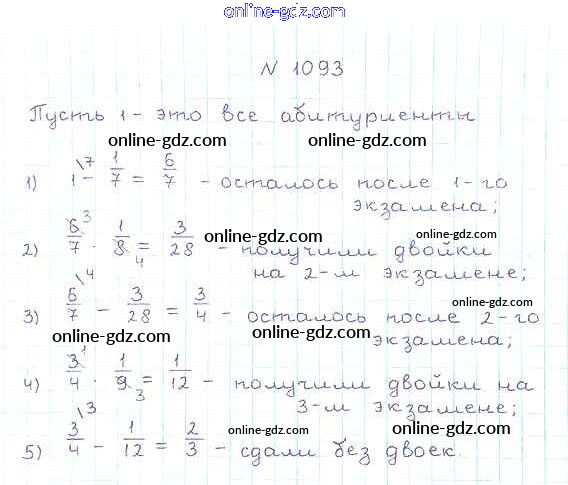 online-gdz.com
N 1093
Пусть 1 - это все абитуриенты
online-gdz.com online-gdz.com
1) 1\7 - 1/7 = 6/7 - осталось после 1-го
online-gdz.com экзамена;
2) 6/7 · 1/8 = 3/28 - получили двойки
3 4 online-gdz.com online-gdz.com
на 2-м экзамене;
3) 6/7\4 - 3/28 = 3/4 - осталось после 2-го
online-gdz.com
online-gdz.com online-gdz.com экзамена;
4) 3/4 · 1/9 = 1/12 - получили двойки на
1 3 online-gdz.com
online-gdz.com 3-м экзамене;
5) 3/4\3 - 1/12 = 2/3 - сдали без двоек.
online-gdz.com online-gdz.com
online-gdz.com